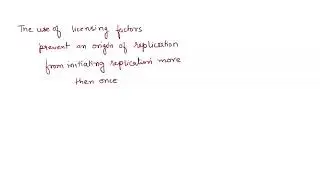 The use of licensing factors
prevent an origin of replication
from initiating replication more
then once